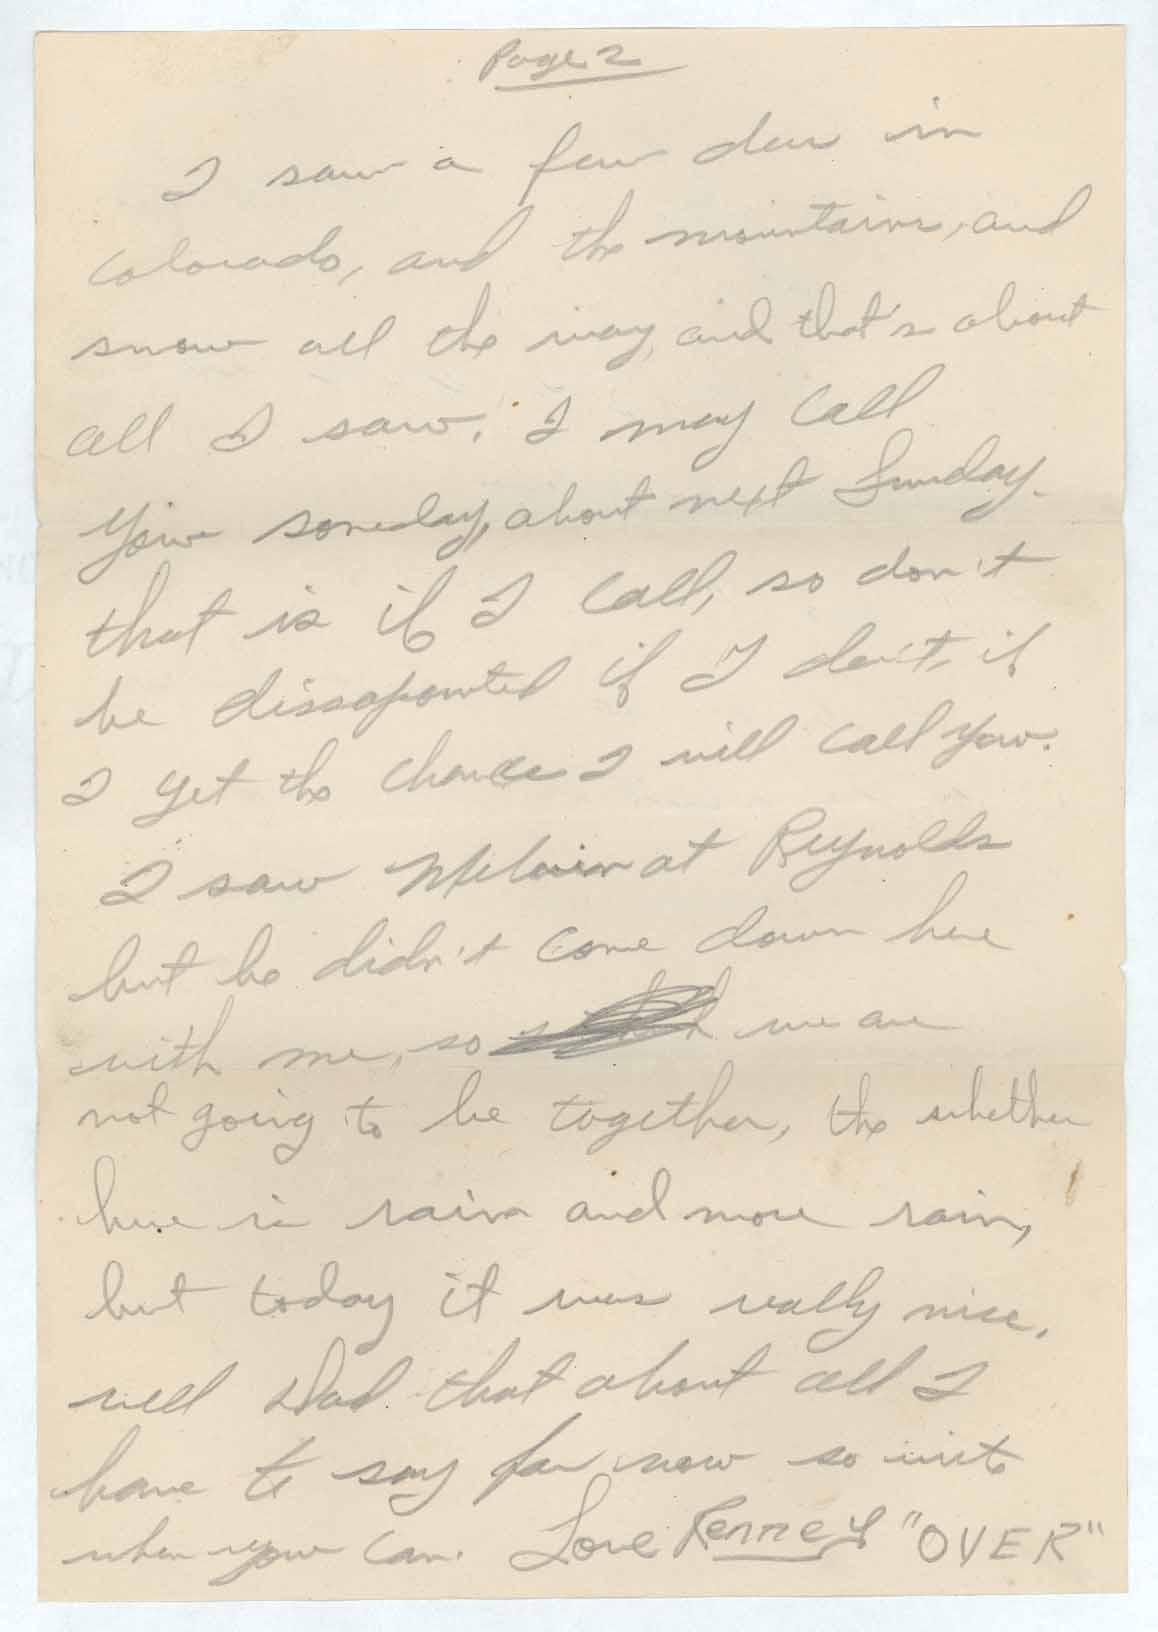 Page 2
I saw a few dear in
Colorado, and the mountains, and
snow all the way, and that's about
all I saw. I may call
you someday, about next Sunday.
that is if I call, so don't
be dissapointed if I don't, if
I get the chance I will call you.
I saw Melvin at Reynolds
but he didn't come down here
with me, so we are
not going to be together, the whether
here is rain and more rain,
but today it was really nice.
well Dad that about all I
have to say for now so write
when you can. Love Kenney "OVER"